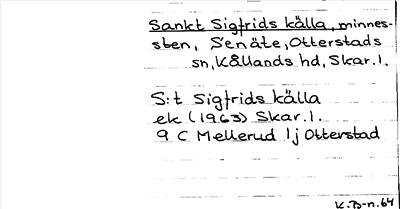 Sankt Sigfrids källa, minnes-
sten, Senäte, Otterstads
sn, Kållands hd, Skar.l.
S:t Sigfrids källa
ek (1963) Skar.l.
9 C Mellerud 1j Otterstad
K.B-n.64